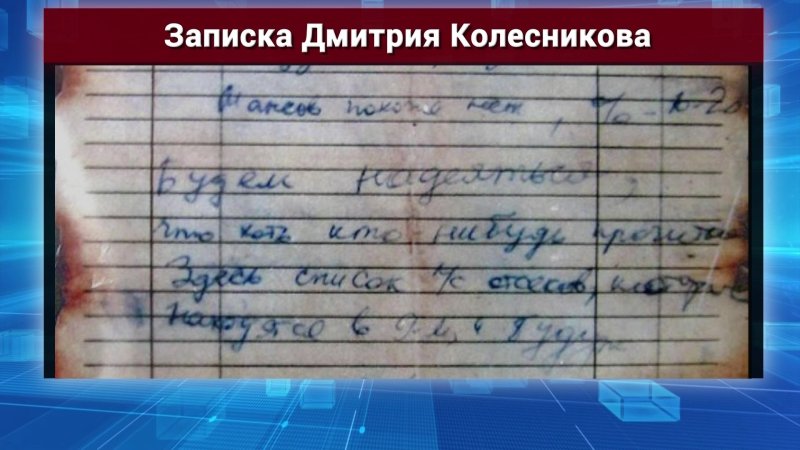 Записка Дмитрия Колесникова
Шансов похоже нет, % - 10-20
Будем надеяться,
что хоть кто нибудь прочитает
Здесь список л/с отсеков, которые
находятся в 9-м, и будут